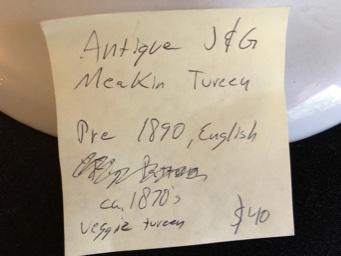 Antique J&G
Meakin Tureen
Pre 1890, English
ca. 1870's
veggie tureen
$40